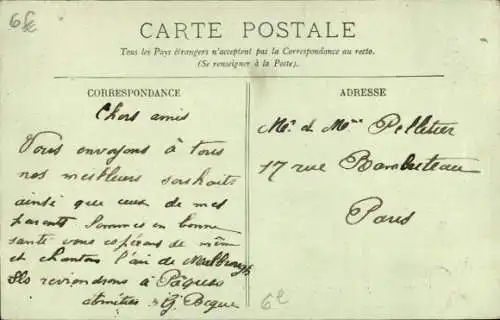 CARTE POSTALE
Tous les Pays étrangers n'acceptent pas la Correspondance au recto.
(Se renseigner à la Poste).
CORRESPONDANCE
Chers amis
Vous envoyons à tous
nos meilleurs souhaits
ainsi que ceux de mes
parents Sommes en bonne
santé vous espérons de même
et chantons l'air de
Ils reviendrons à Pâques
amitiés G.
ADRESSE
Mr. et Mme Pelletier
17 rue Rambuteau
Paris